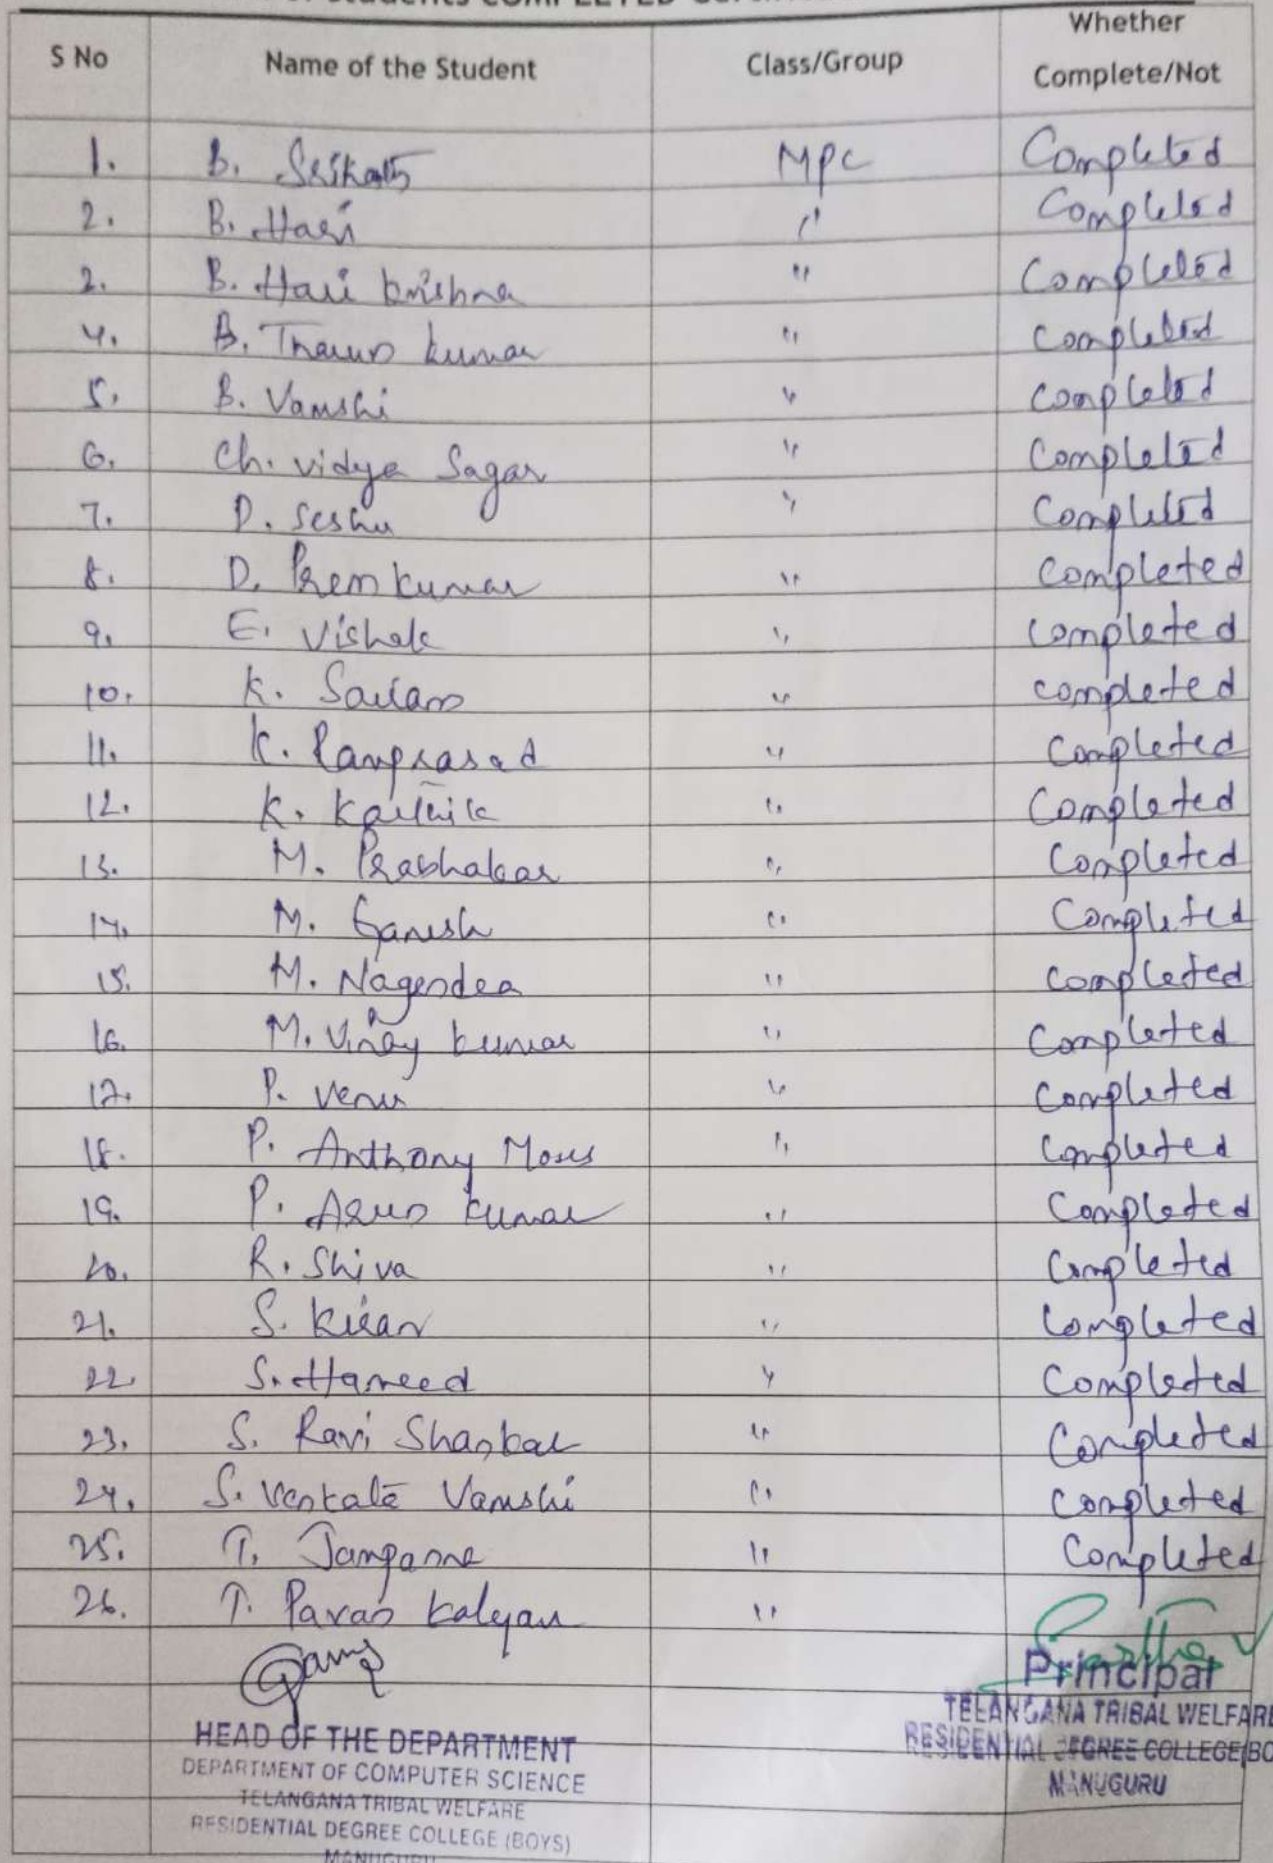 Students COMPLETED
S No Name of the Student Class/Group Whether Complete/Not
1. B. Srikanth MPC Completed
2. B. Hari " Completed
3. B. Hari krishna " Completed
4. B. Tharun kumar " Completed
5. B. Vamshi " Completed
6. Ch. vidya Sagar " Completed
7. D. Seshu " Completed
8. D. Prem kumar " Completed
9. E. Vishak " Completed
10. K. Sairam " Completed
11. K. Ramprasad " Completed
12. K. Karthik " Completed
13. M. Prabhakar " Completed
14. M. Ganesh " Completed
15. M. Nagendra " Completed
16. M. Vinay kumar " Completed
17. P. Venu " Completed
18. P. Anthony Moses " Completed
19. P. Arun kumar " Completed
20. R. Shiva " Completed
21. S. Kiran " Completed
22. S. Hameed " Completed
23. S. Ravi Shankar " Completed
24. S. Venkata Vamshi " Completed
25. T. Jampanna " Completed
26. T. Pavan kalyan "
HEAD OF THE DEPARTMENT
DEPARTMENT OF COMPUTER SCIENCE
TELANGANA TRIBAL WELFARE
RESIDENTIAL DEGREE COLLEGE (BOYS)
MANUGURU
Principal
TELANGANA TRIBAL WELFARE
RESIDENTIAL DEGREE COLLEGE (BO
MANUGURU